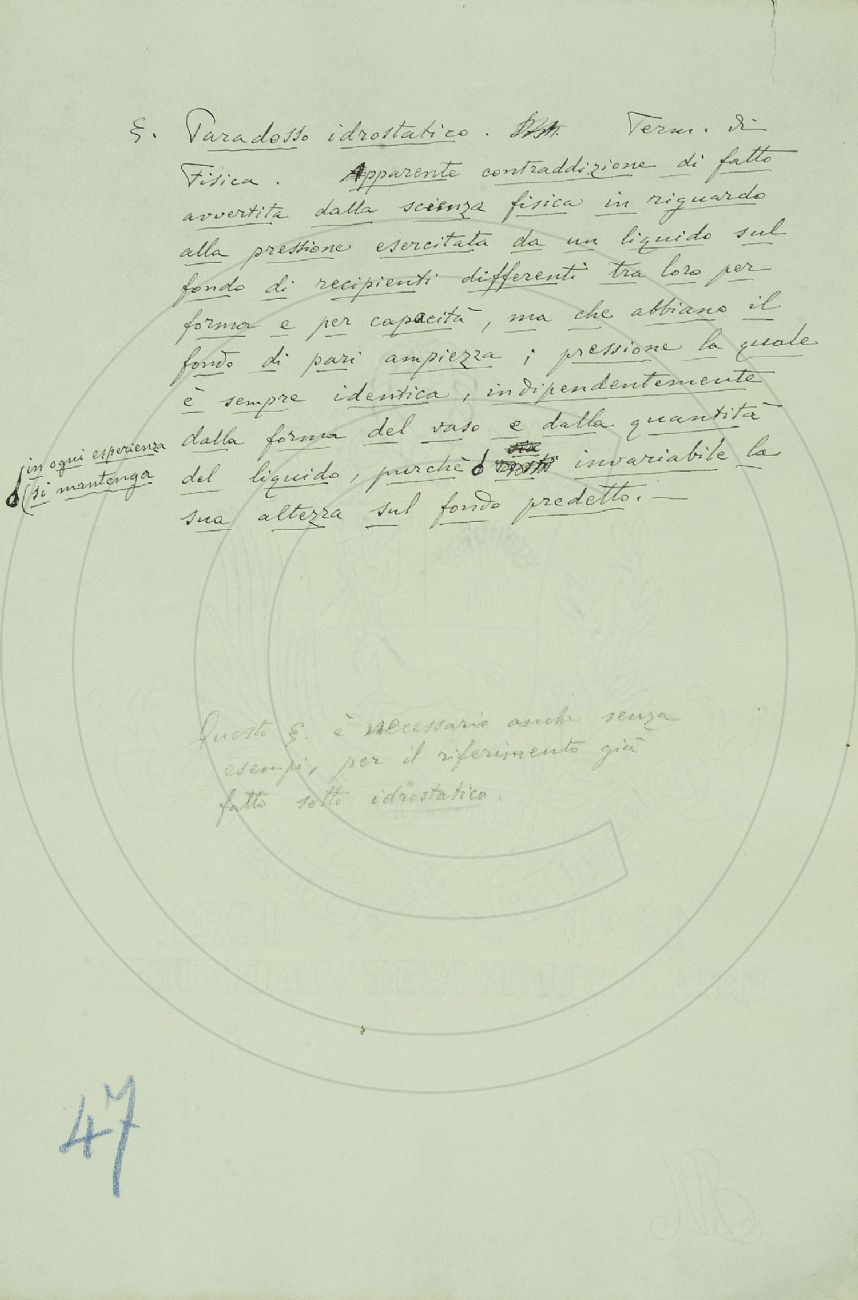 §. Paradosso idrostatico. Term. di
Fisica. Apparente contraddizione di fatto
avvertita dalla scienza fisica in riguardo
alla pressione esercitata da un liquido sul
fondo di recipienti differenti tra loro per
forma e per capacità, ma che abbiano il
fondo di pari ampiezza; pressione la quale
è sempre identica, indipendentemente
dalla forma del vaso e dalla quantità
in ogni esperienza
si mantenga
del liquido, purchè invariabile la
sua altezza sul fondo predetto. —
Questo §. è necessario anche senza
esempi, per il riferimento già
fatto sotto idrostatico.
47